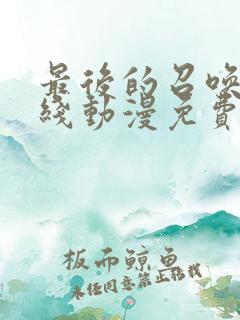 最後的召喚
綫動漫免費
板而鯨魚
未經同意禁止轉載